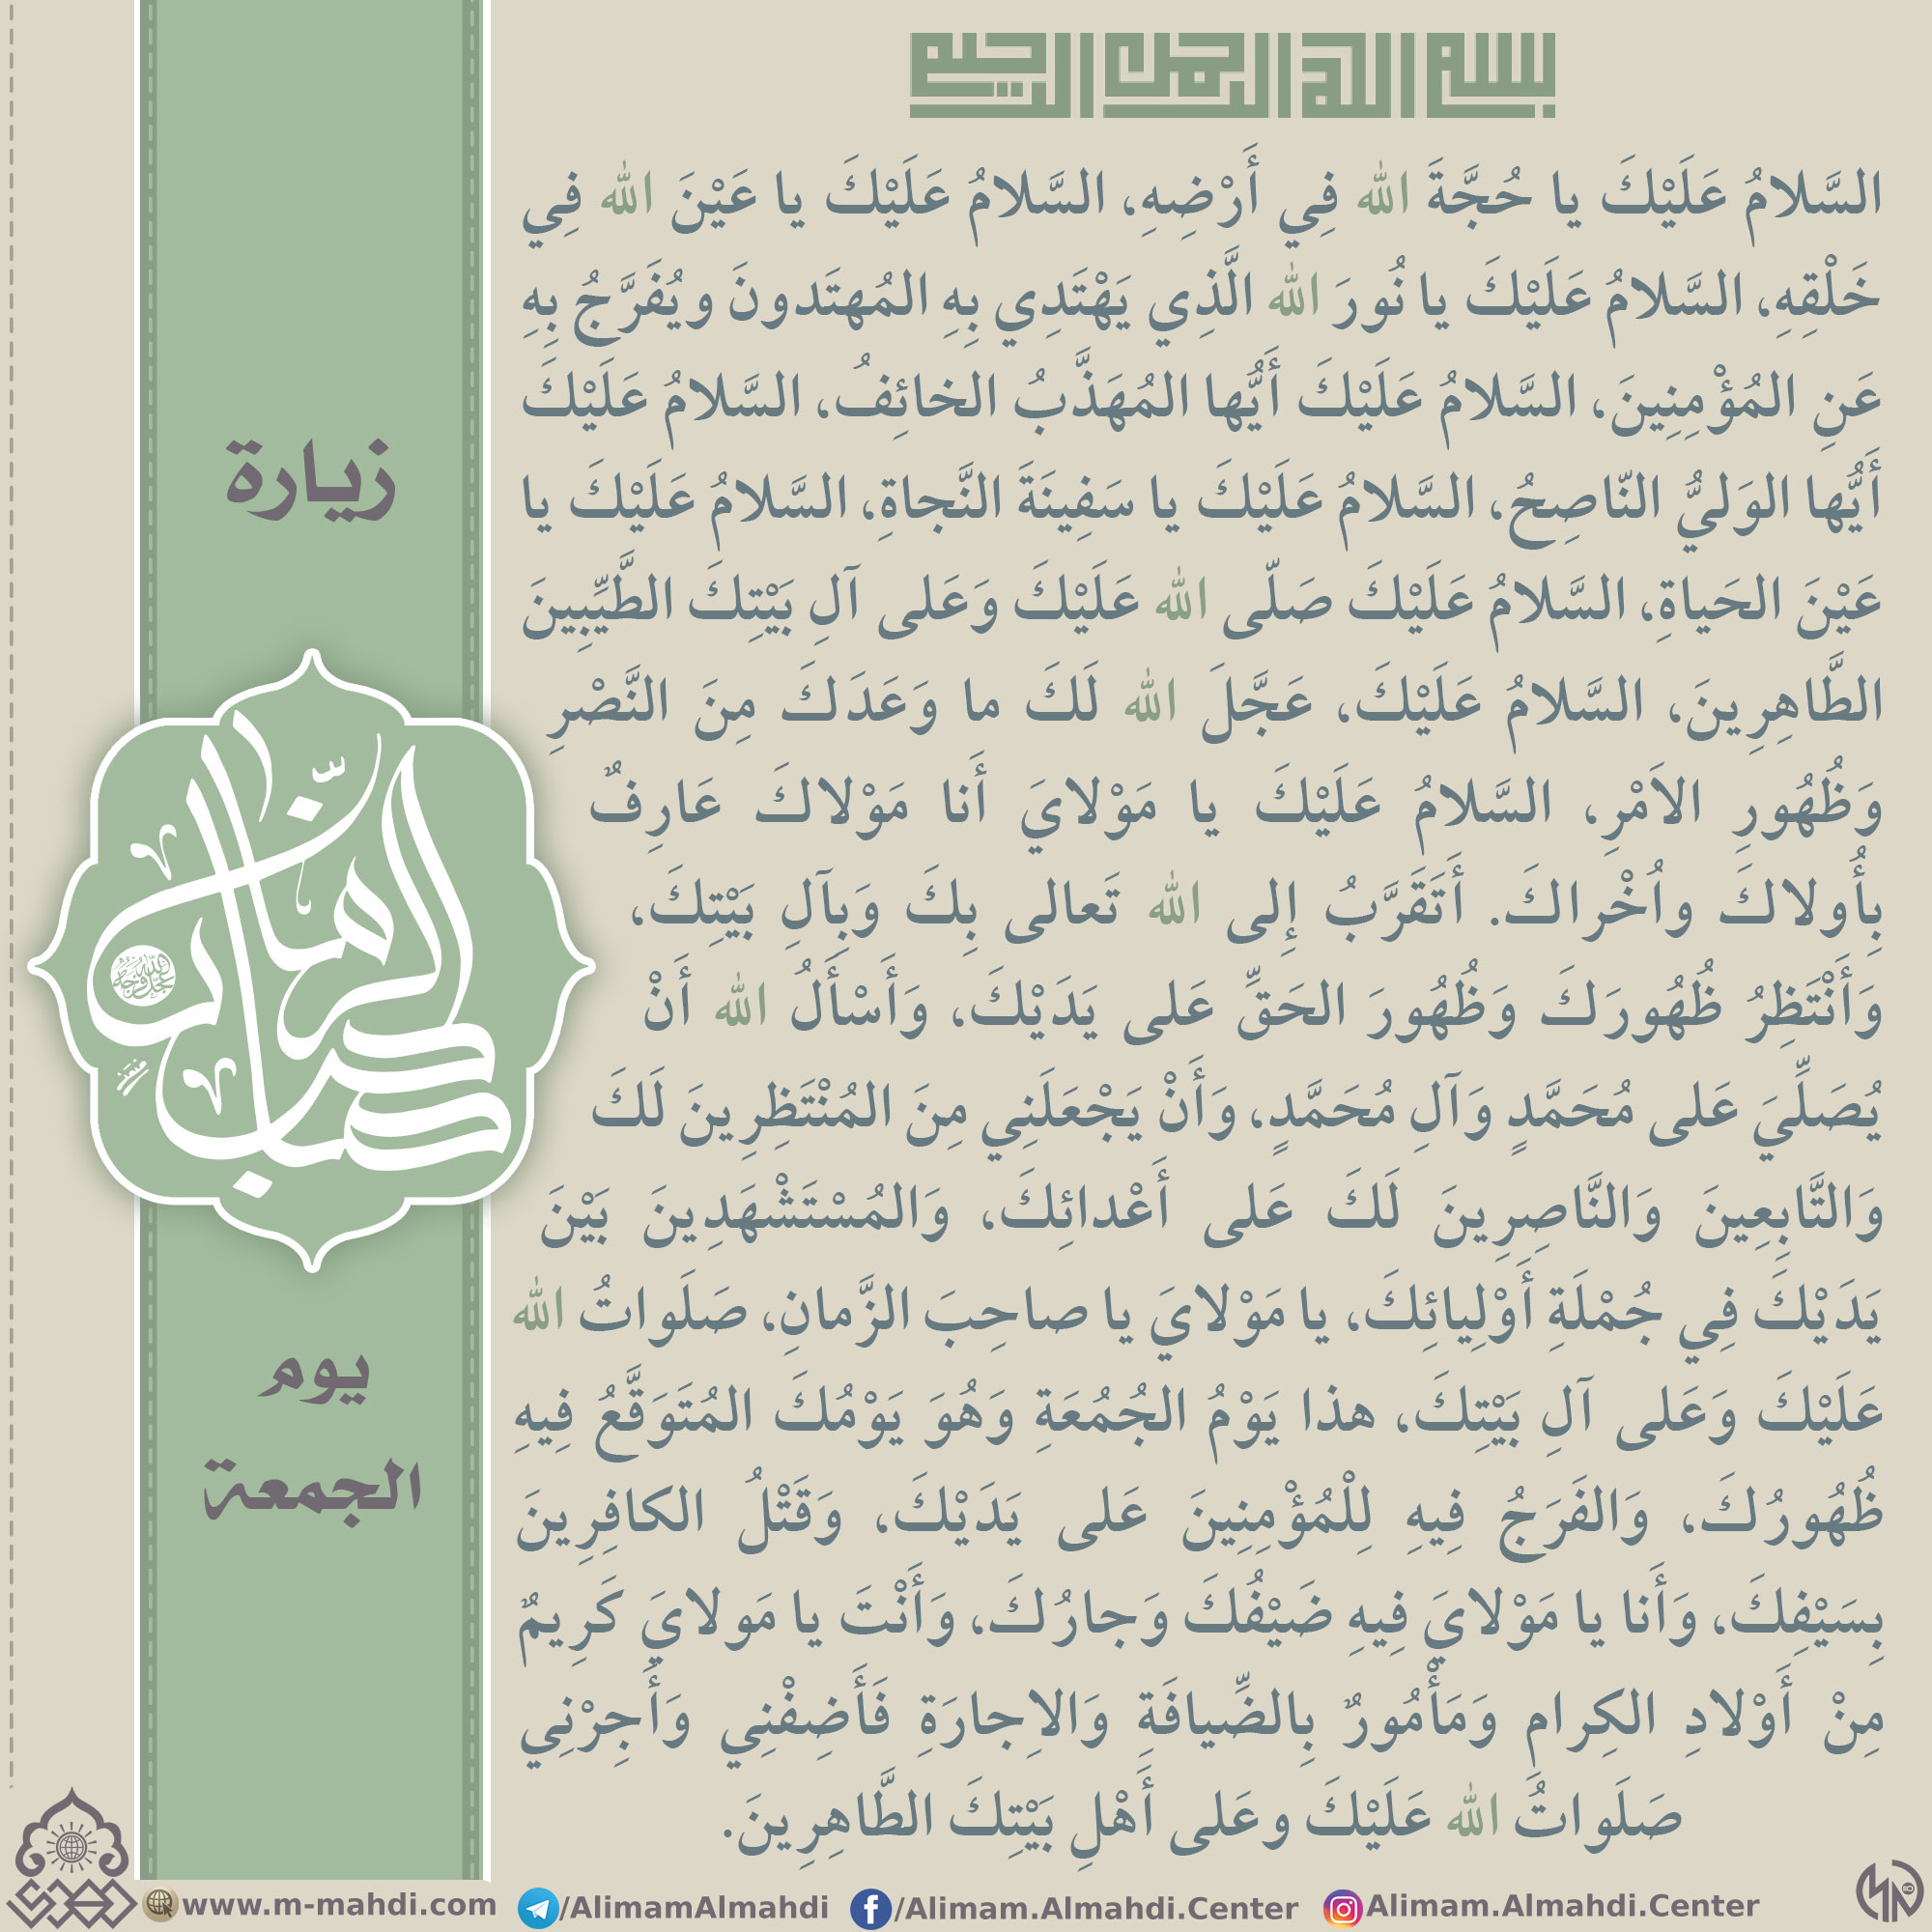 بسم الله الرحمن الرحيم
السَّلامُ عَلَيْكَ يا حُجَّةَ الله فِي أَرْضِهِ، السَّلامُ عَلَيْكَ يا عَيْنَ الله فِي
خَلْقِهِ، السَّلامُ عَلَيْكَ يا نُورَ الله الَّذِي يَهْتَدِي بِهِ المُهتَدونَ ويُفَرَّجُ بِهِ
عَنِ المُؤْمِنِينَ، السَّلامُ عَلَيْكَ أَيُّها المُهَذَّبُ الخائِفُ، السَّلامُ عَلَيْكَ
أَيُّها الوَليُّ النّاصِحُ، السَّلامُ عَلَيْكَ يا سَفِينَةَ النَّجاةِ، السَّلامُ عَلَيْكَ يا
عَيْنَ الحَياةِ، السَّلامُ عَلَيْكَ صَلّى الله عَلَيْكَ وَعَلى آلِ بَيْتِكَ الطَّيِّبِينَ
الطَّاهِرِينَ، السَّلامُ عَلَيْكَ، عَجَّلَ الله لَكَ ما وَعَدَكَ مِنَ النَّصْرِ
وَظُهُورِ الاَمْرِ، السَّلامُ عَلَيْكَ يا مَوْلايَ أَنا مَوْلاكَ عَارِفٌ
بِأُولاكَ واُخْراكَ. أَتَقَرَّبُ إِلى الله تَعالى بِكَ وَبِآلِ بَيْتِكَ،
وَأَنْتَظِرُ ظُهُورَكَ وَظُهُورَ الحَقِّ عَلى يَدَيْكَ، وَأَسْأَلُ الله أَنْ
يُصَلِّيَ عَلى مُحَمَّدٍ وَآلِ مُحَمَّدٍ، وَأَنْ يَجْعَلَنِي مِنَ المُنْتَظِرِينَ لَكَ
وَالتَّابِعِينَ وَالنَّاصِرِينَ لَكَ عَلى أَعْدائِكَ، وَالمُسْتَشْهَدِينَ بَيْنَ
يَدَيْكَ فِي جُمْلَةِ أَوْلِيائِكَ، يا مَوْلايَ يا صاحِبَ الزَّمانِ، صَلَواتُ الله
عَلَيْكَ وَعَلى آلِ بَيْتِكَ، هذا يَوْمُ الجُمُعَةِ وَهُوَ يَوْمُكَ المُتَوَقَّعُ فِيهِ
ظُهُورُكَ، وَالفَرَجُ فِيهِ لِلْمُؤْمِنِينَ عَلى يَدَيْكَ، وَقَتْلُ الكافِرِينَ
بِسَيْفِكَ، وَأَنا يا مَوْلايَ فِيهِ ضَيْفُكَ وَجارُكَ، وَأَنْتَ يا مَولايَ كَرِيمٌ
مِنْ أَوْلادِ الكِرام وَمَأْمُورٌ بِالضِّيافَةِ وَالاِجارَةِ فَأَضِفْنِي وَأَجِرْنِي
صَلَواتُ الله عَلَيْكَ وعَلى أَهْلِ بَيْتِكَ الطَّاهِرِينَ.
زيارة
يوم
الجمعة
www.m-mahdi.com
/AlimamAlmahdi
/Alimam.Almahdi.Center
Alimam.Almahdi.Center